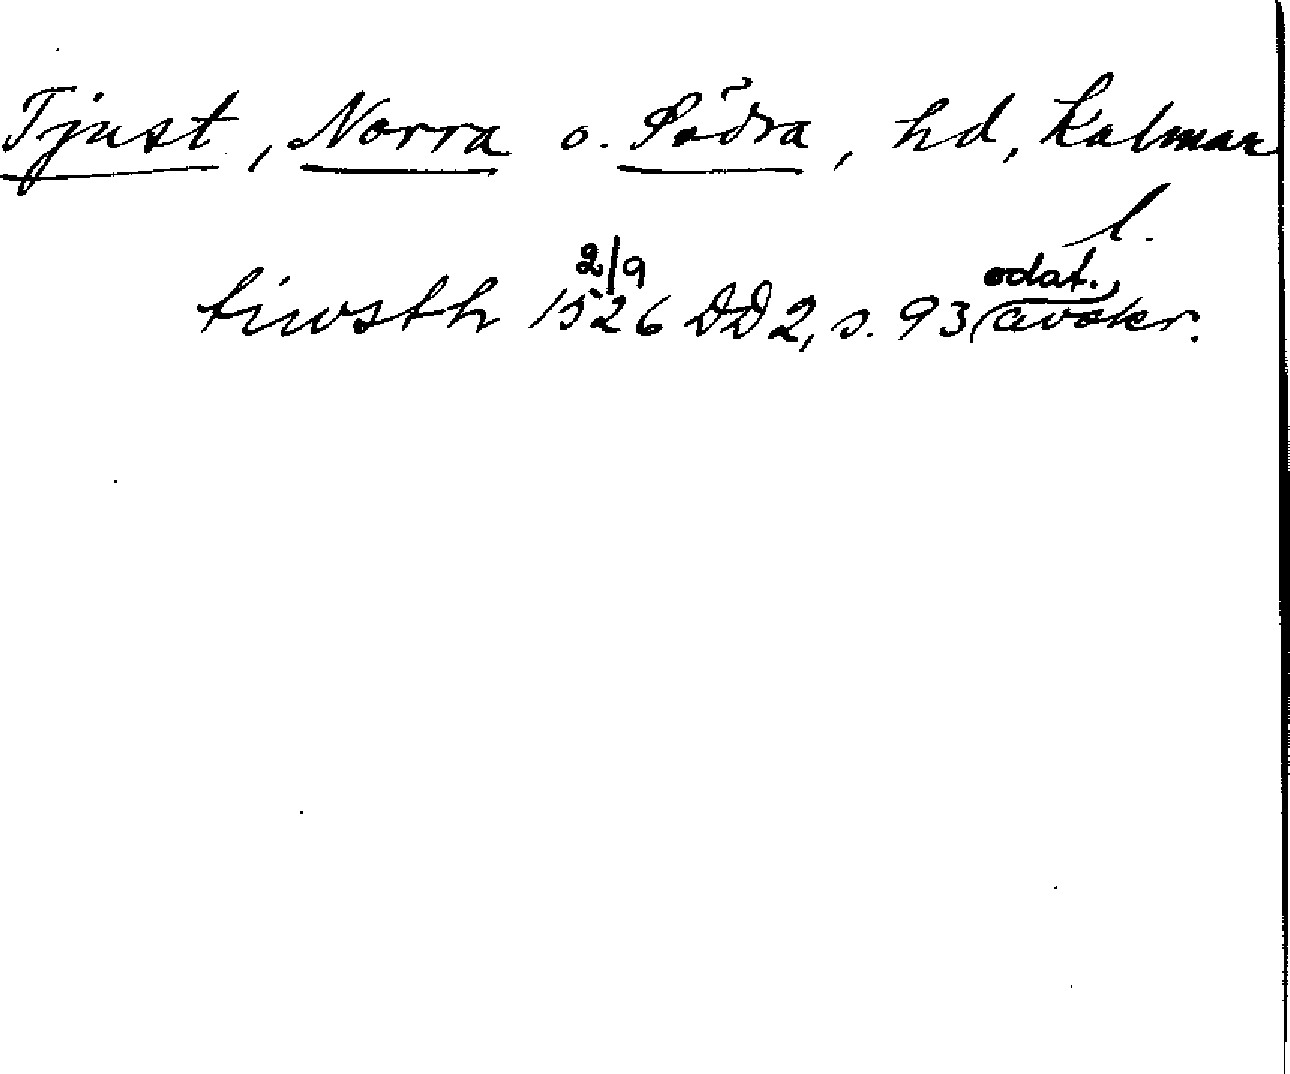 Tjust, Norra o. Södra, hd, Kalmar
l.
tiwsth 1526 2/9 DD 2, s. 93 (odat. avskr.